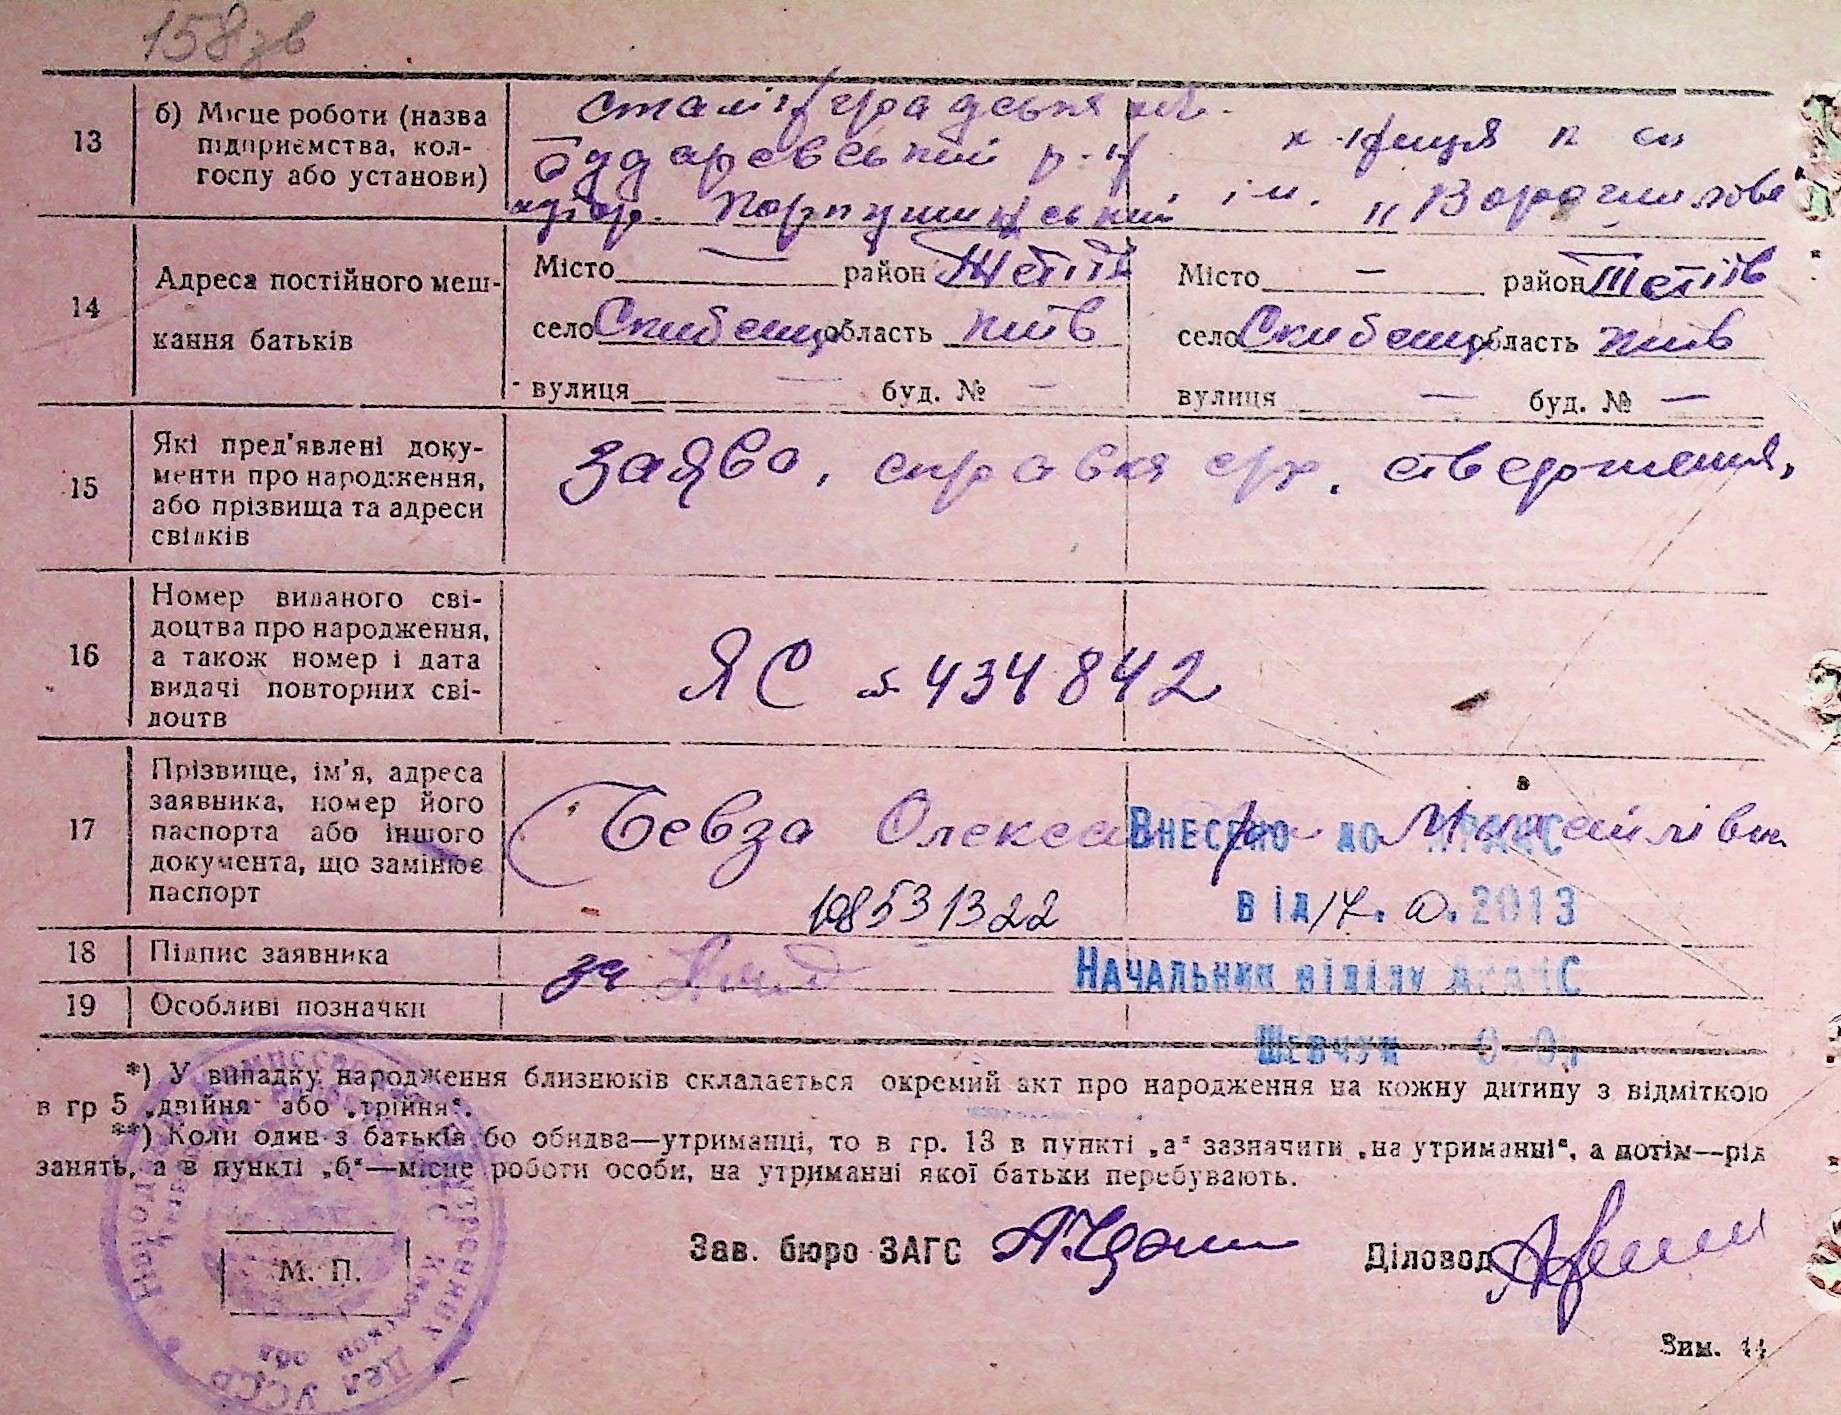 158зв
13
б) Місце роботи (назва
підприємства, кол-
госпу або установи)
сталінградська
р-н
ім. „Ворошилова"
14
Адреса постійного меш-
кання батьків
Місто — район Тетіїв
село Скибенці область Київ
вулиця — буд. № —
Місто — район Тетіїв
село Скибенці область Київ
вулиця — буд. № —
15
Які пред'явлені доку-
менти про народження,
або прізвища та адреси
свідків
заява, справка
16
Номер виданого сві-
доцтва про народження,
а також номер і дата
видачі повторних сві-
доцтв
ЯС № 434842
17
Прізвище, ім'я, адреса
заявника, номер його
паспорта або іншого
документа, що замінює
паспорт
Бевза Михайлівна
Внесено до
108531322
від 2013
18
Підпис заявника
за
Начальник відділу
19
Особливі позначки
Шевчук О.О.
*) У випадку народження близнюків складається окремий акт про народження на кожну дитину з відміткою
в гр 5 „двійня" або „трійня".
**) Коли один з батьків бо обидва—утриманці, то в гр. 13 в пункті „а" зазначити „на утриманні", а потім—рід
занять, а в пункті „б"—місце роботи особи, на утриманні якої батьки перебувають.
М. П.
Зав. бюро ЗАГС
Діловод
Зим. 44